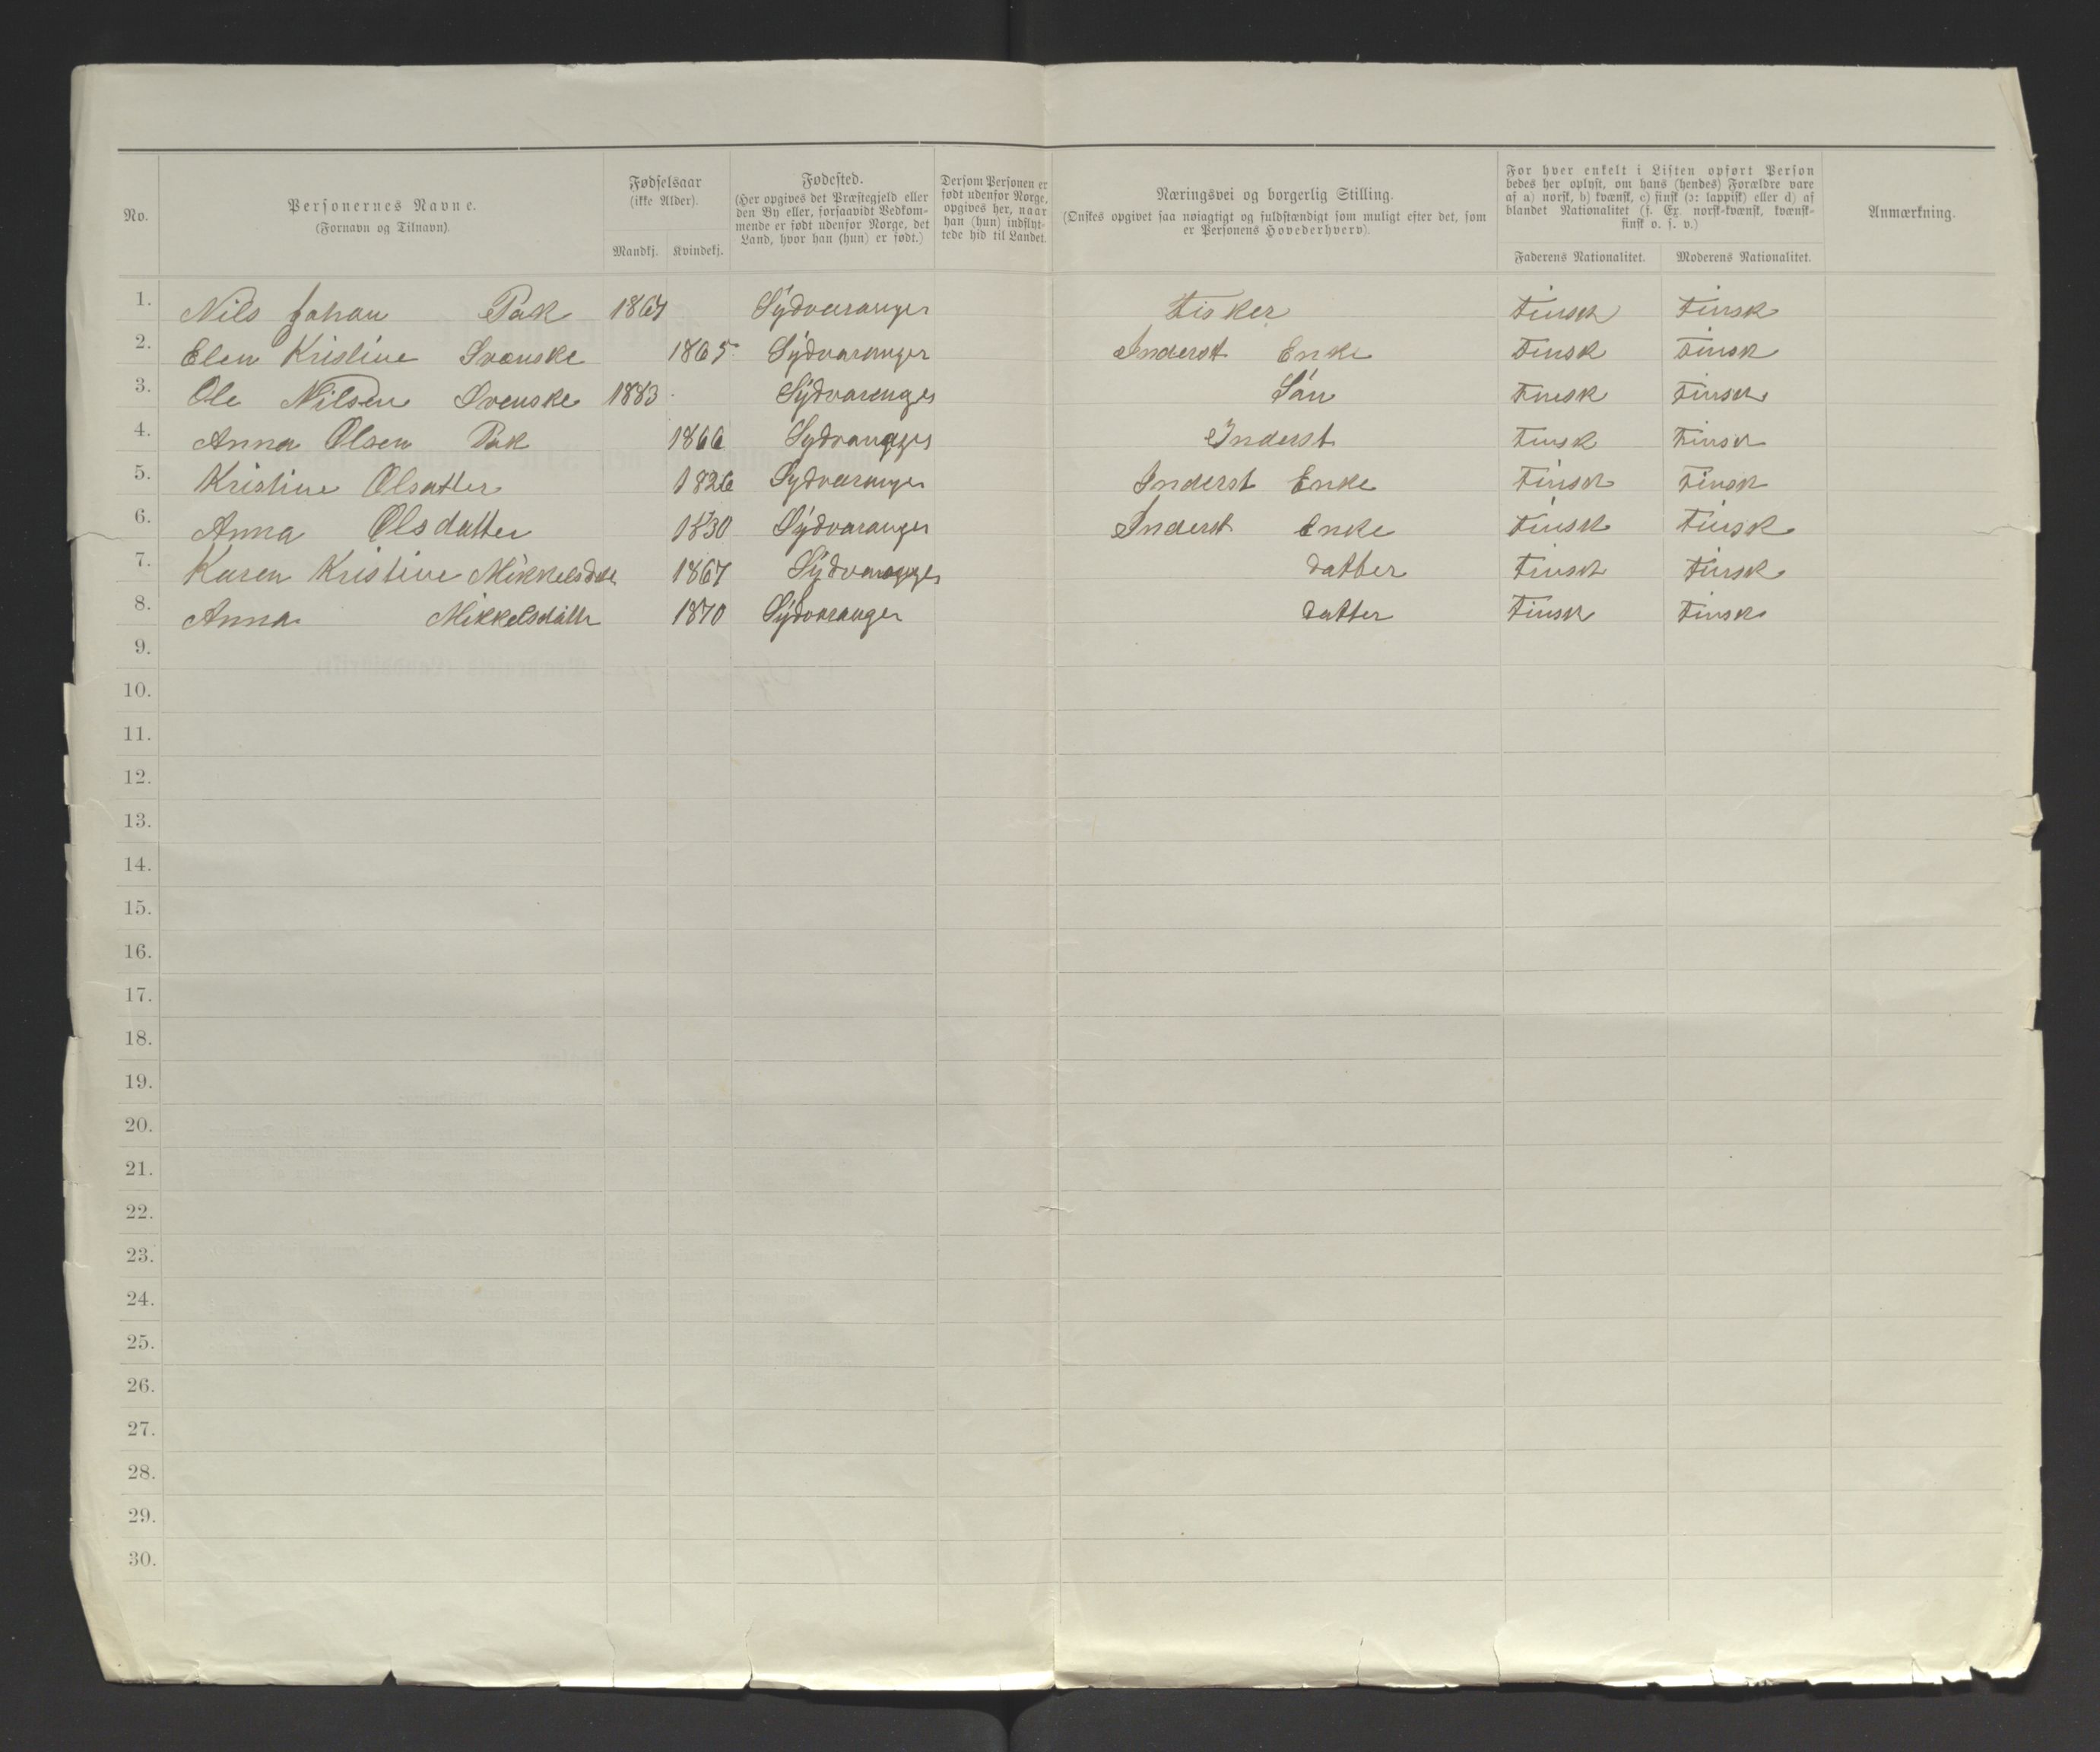 No.
Personernes Navne.
(Fornavn og Tilnavn).
Fødselsaar
(ikke Alder).
Mandkj. Kvindekj.
Fødested.
(Her opgives det Præstegjeld eller
den By eller, forsaavidt Vedkom-
mende er født udenfor Norge, det
Land, hvor han (hun) er født.)
Dersom Personen er
født udenfor Norge,
opgives her, naar
han (hun) indflyt-
tede hid til Landet.
Næringsvei og borgerlig Stilling.
(Ønskes opgivet saa nøiagtigt og fuldstændigt som muligt efter det, som
er Personens Hovederhverv).
For hver enkelt i Listen opført Person
bedes her oplyst, om hans (hendes) Forældre vare
af a) norsk, b) kvænsk, c) finsk (ɔ: lappisk) eller d) af
blandet Nationalitet (f. Ex. norsk-kvænsk, kvænsk-
finsk o. s. v.)
Faderens Nationalitet. Moderens Nationalitet.
Anmærkning.
1. Nils Johan Pak 1867 Sydvaranger Fisker Finsk Finsk
2. Elen Kristine Svenske 1865 Sydvaranger Inderst Enke Finsk Finsk
3. Ole Nilsen Svenske 1883 Sydvaranger Sön Finsk Finsk
4. Anna Olsen Pak 1866 Sydvaranger Inderst Finsk Finsk
5. Kristine Olsatter 1826 Sydvaranger Inderst Enke Finsk Finsk
6. Anna Olsdatter 1830 Sydvaranger Inderst Enke Finsk Finsk
7. Karen Kristine 1867 Sydvaranger datter Finsk Finsk
8. Anna Mikkelsdattr 1870 Sydvaranger datter Finsk Finsk
9.
10.
11.
12.
13.
14.
15.
16.
17.
18.
19.
20.
21.
22.
23.
24.
25.
26.
27.
28.
29.
30.